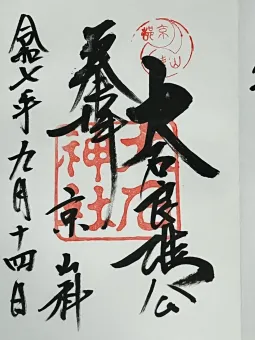 奉拝
京
山科
大石良雄公
大石
神社
令和七年九月十四日